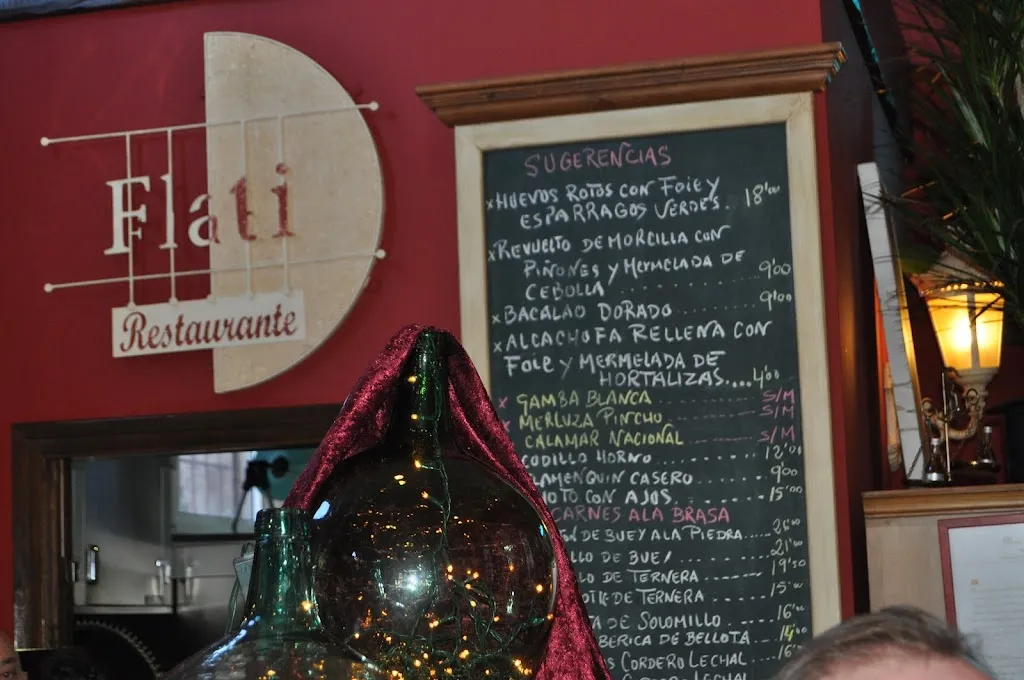 Flati
Restaurante
SUGERENCIAS
x HUEVOS ROTOS CON FOIE Y
ESPARRAGOS VERDES. 18'00
x REVUELTO DE MORCILLA CON
PIÑONES Y MERMELADA DE
CEBOLLA ........ 9'00
x BACALAO DORADO ........ 9'00
x ALCACHOFA RELLENA CON
FOIE Y MERMELADA DE
HORTALIZAS.... 4'00
x GAMBA BLANCA ........ S/M
MERLUZA PINCHO ........ S/M
CALAMAR NACIONAL ........ S/M
CODILLO HORNO ........ 12'00
LAMENQUIN CASERO ........ 9'00
OTO CON AJOS ........ 15'00
CARNES A LA BRASA
DE BUEY A LA PIEDRA....
LLO DE BUEY ........ 21'00
LO DE TERNERA ........ 19'50
DE TERNERA ........ 15'00
TA DE SOLOMILLO ..... 16'00
BERICA DE BELLOTA ....
S CORDERO LECHAL ....
CORDERO LECHAL